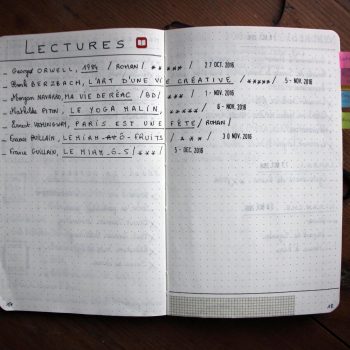 LECTURES
_ George ORWELL, 1984 / ROMAN / ★★★★★ / 27 OCT. 2016
_ Frank BERZBACH, L'ART D'UNE VIE CRÉATIVE / ★★★★★ / 5 - NOV. 2016
_ Morgan NAVARRO, MA VIE DE RÉAC / BD / ★★★ / 1 - NOV. 2016
_ Mathilde PITON, LE YOGA MALIN, ★★★★★ / 6 - NOV. 2016
_ Ernest HEMINGWAY, PARIS EST UNE FÊTE / ROMAN /
_ France GUILLAIN, LE MIAM-Ô-FRUITS / ★★★ / 30 NOV. 2016
_ France GUILLAIN, LE MIAM_6_5 / ★★★ / 5 - DEC. 2016